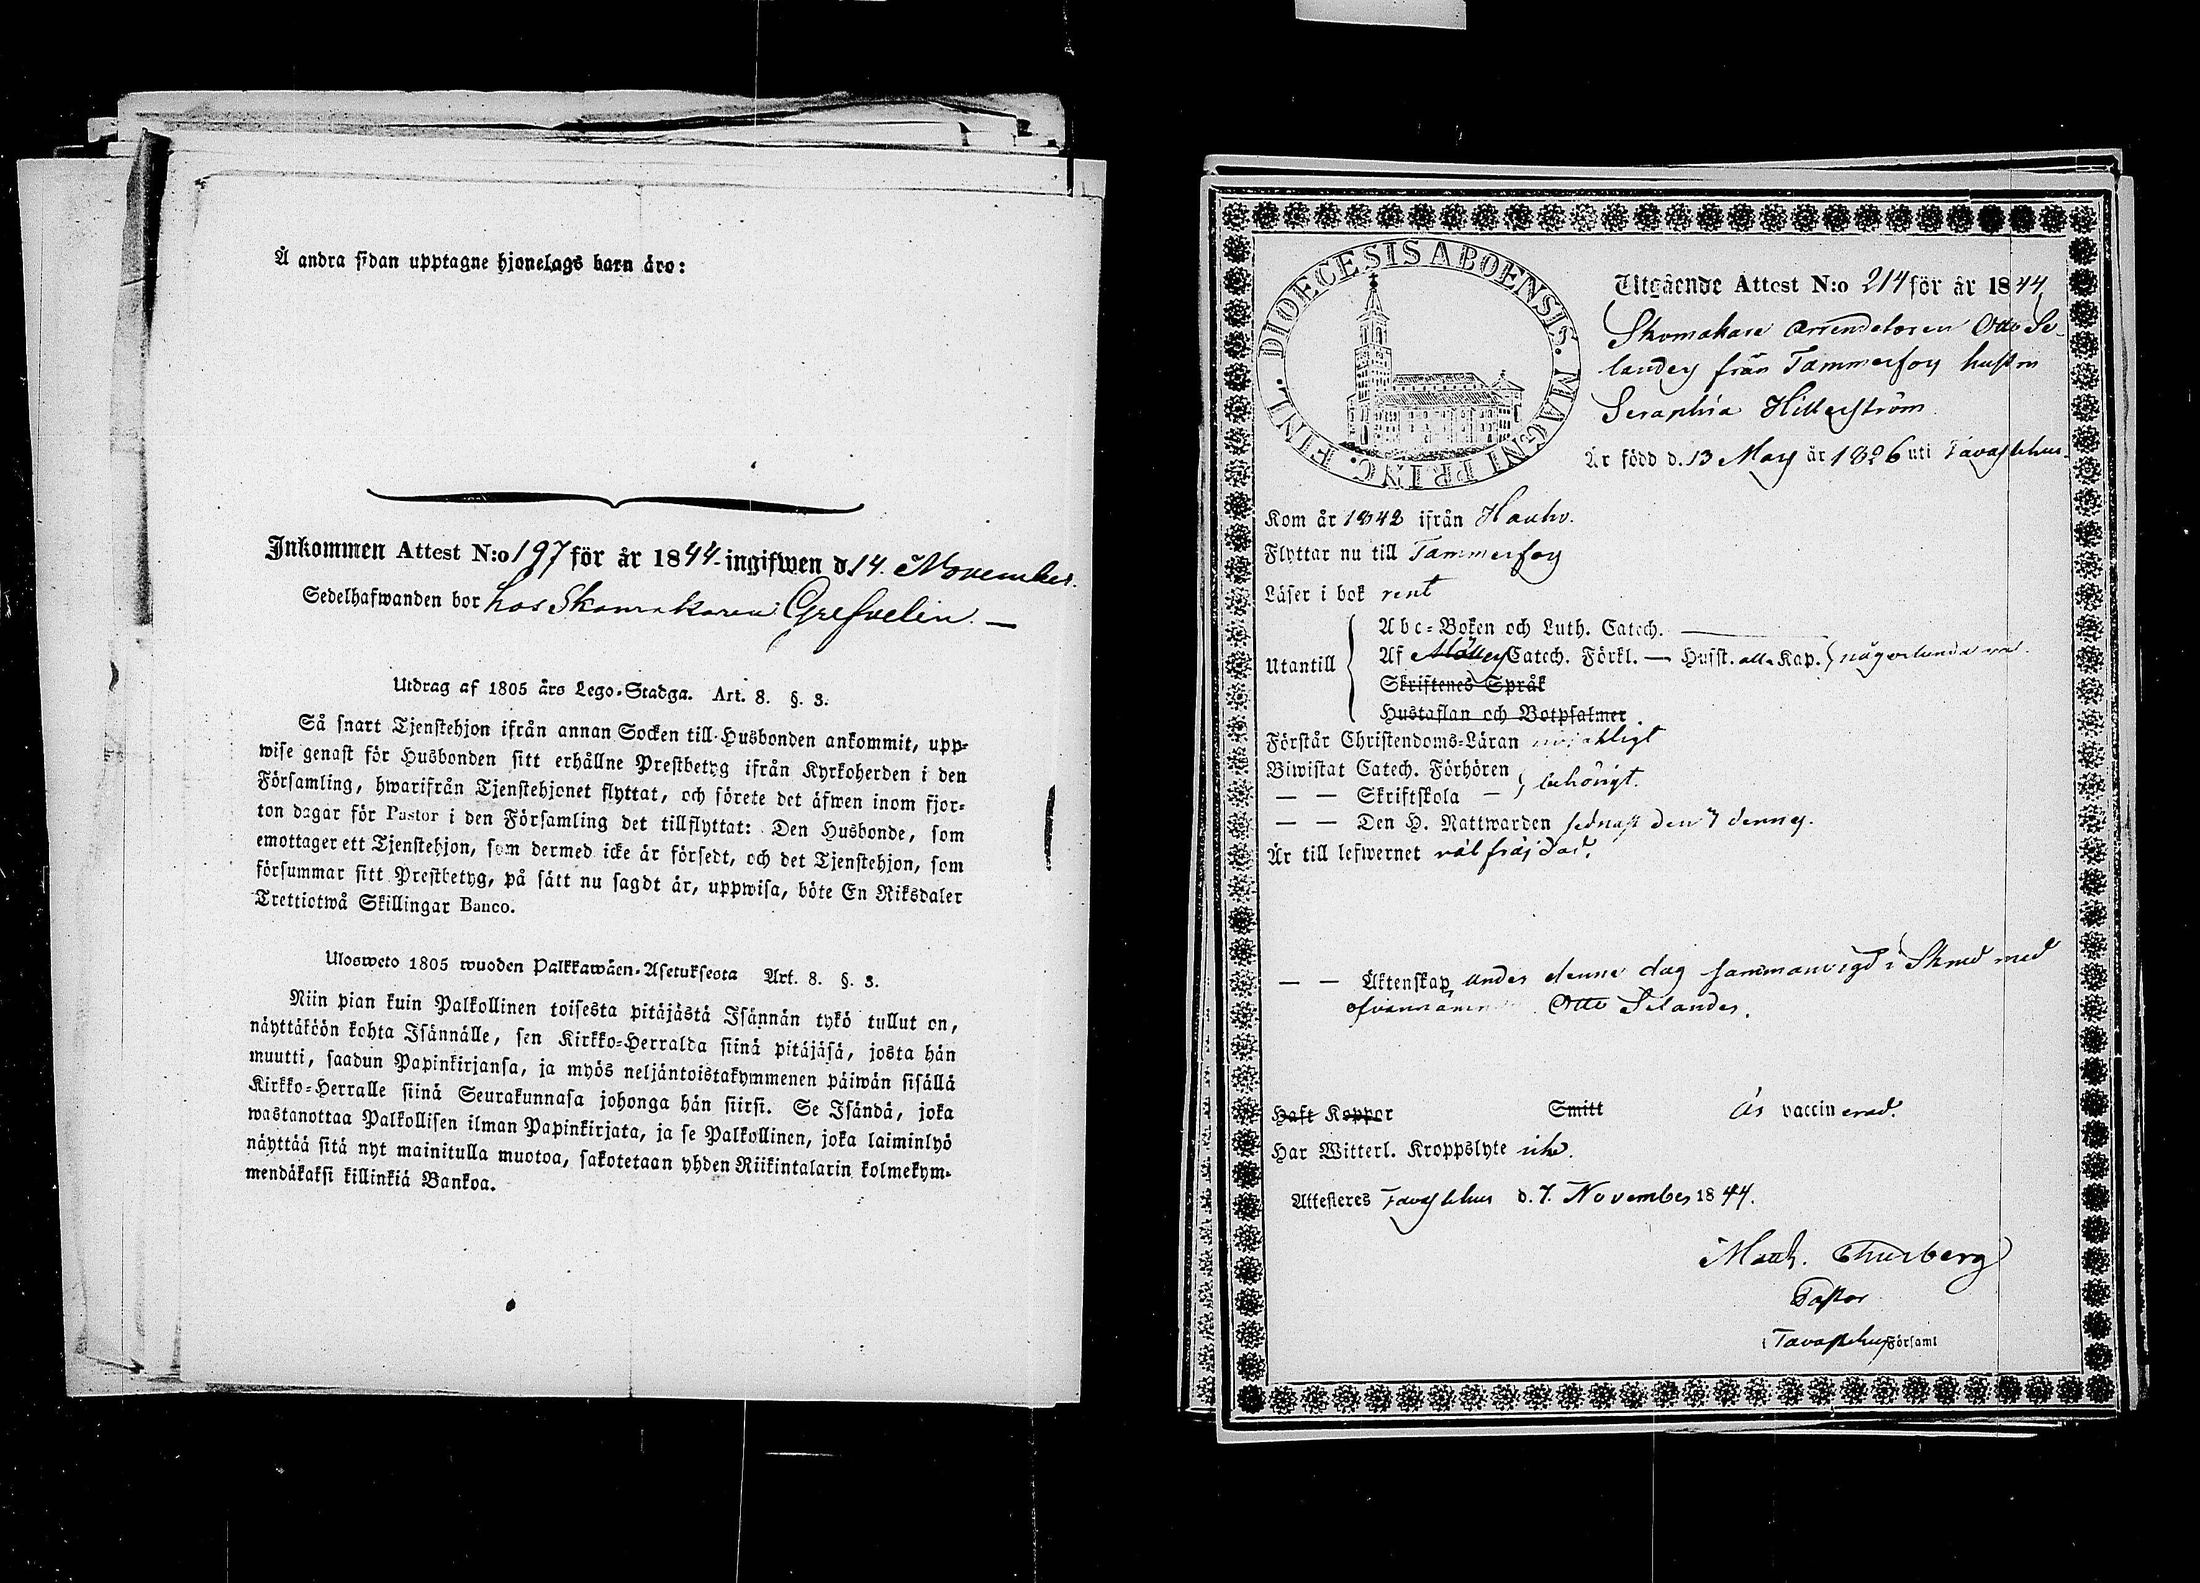 Å andra sidan upptagne hjonelags barn äro:
Inkommen Attest N:o 197 för år 1844 ingifwen d. 14. November.
Sedelhafwanden bor hos Skomakaren Grefvelin. —
Utdrag af 1805 års Lego-Stadga. Art. 8. §. 3.
Så snart Tjenstehjon ifrån annan Socken till Husbonden ankommit, upp-
wise genast för Husbonden sitt erhållne Prestbetyg ifrån Kyrkoherden i den
Församling, hwarifrån Tjenstehjonet flyttat, och förete det äfwen inom fjor-
ton dagar för Pastor i den Församling det tillflyttat: Den Husbonde, som
emottager ett Tjenstehjon, som dermed icke är försedt, och det Tjenstehjon, som
försummar sitt Prestbetyg, på sätt nu sagdt är, uppwisa, böte En Riksdaler
Trettiotwå Skillingar Banco.
Ulosweto 1805 wuoden Palkkawäen-Asetuksesta Art. 8. §. 3.
Niin pian kuin Palkollinen toisesta pitäjästä Isännän tykö tullut on,
näyttäköön kohta Isännälle, sen Kirkko-Herralda siinä pitäjäsä, josta hän
muutti, saadun Papinkirjansa, ja myös neljäntoistakymmenen päiwän sisällä
Kirkko-Herralle siinä Seurakunnasa johonga hän siirsi. Se Isändä, joka
wastanottaa Palkollisen ilman Papinkirjata, ja se Palkollinen, joka laiminlyö
näyttää sitä nyt mainitulla muotoa, sakotetaan yhden Riikintalarin kolmekym-
mendäkaksi killinkiä Bankoa.
DIOECESIS ABOENSIS. MAGNI PRINC. FINL.
Utgående Attest N:o 214 för år 1844
Skomakare Arrendatoren Otto Se-
landers från Tammerfors hustru
Seraphia Hillerström
Är född d. 13 Mars år 1826 uti Tavastehus.
Kom år 1842 ifrån Hauho.
Flyttar nu till Tammerfors
Läser i bok rent
Utantill
Abc-Boken och Luth. Catech. —
Af Möllers Catech. Förkl. — Husst. alla Kap. någorlunda väl.
Skriftenes Språk
Hustaflan och Botpsalmer
Förstår Christendoms-Läran
Biwistat Catech. Förhören
— — Skriftskola — behörigt.
— — Den H. Nattwarden sednast den 7 dennes.
Är till lefwernet väl fräjdad.
— — Äktenskap under denne dag sammanvigd med
Otto Selander.
Haft Koppor Smitt Är vaccinerad.
Har Witterl. Kroppslyte icke.
Attesteres Tavastehus d. 7. November 1844.
Math. Thurberg
Pastor
i Tavastehus Församl